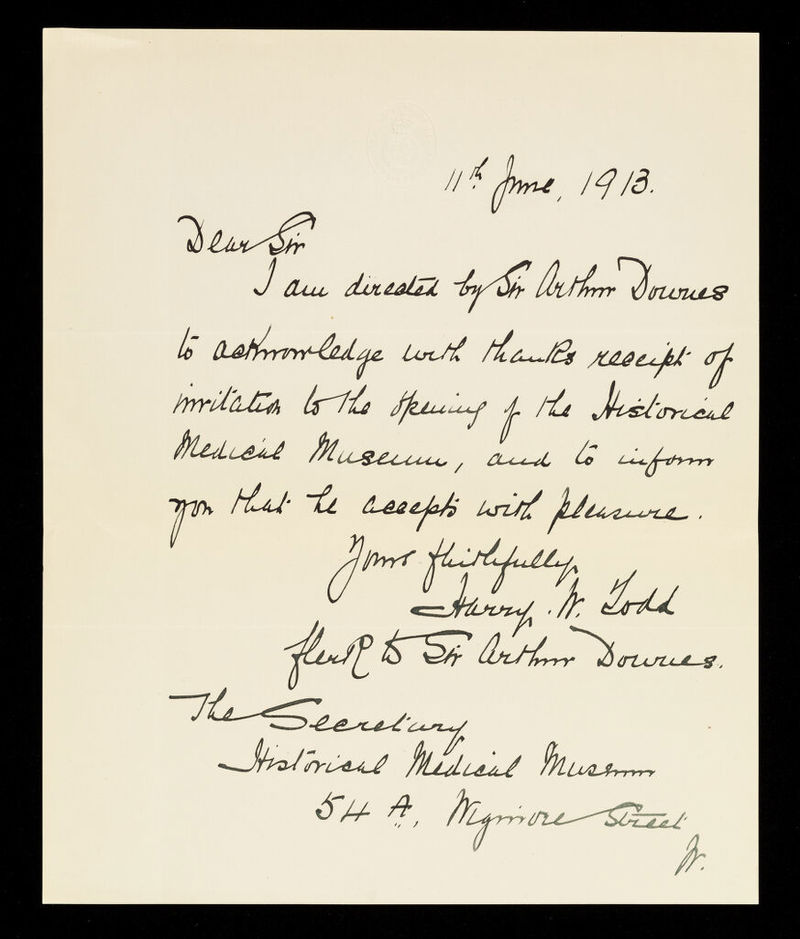 11th June, 1913.
Dear Sir
I am directed by Sir Arthur Downes
to acknowledge with thanks receipt of
invitation to the opening of the Historical
Medical Museum, and to inform
you that he accepts with pleasure.
Yours faithfully
Harry. W. Todd
Clerk to Sir Arthur Downes.
The Secretary
Historical Medical Museum
54 A, Wigmore Street
W.